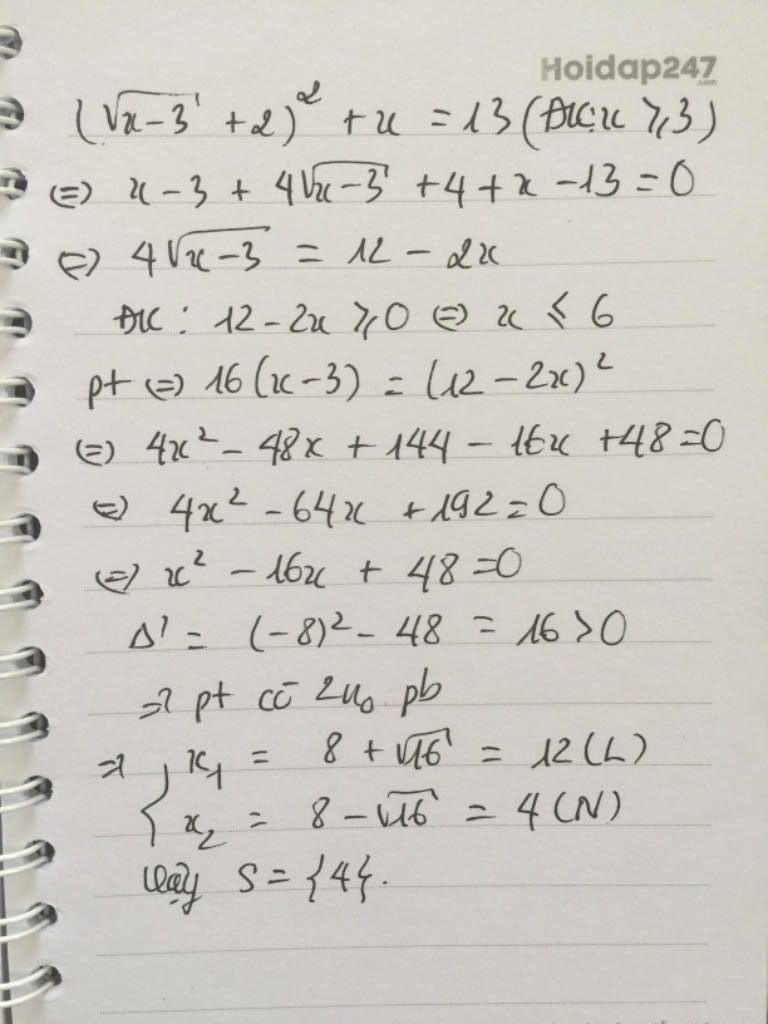 Hoidap247
.com
(√x-3 + 2)² + x = 13 (ĐK: x ≥ 3)
⇔ x - 3 + 4√x-3 + 4 + x - 13 = 0
⇔ 4√x-3 = 12 - 2x
ĐK : 12 - 2x ≥ 0 ⇔ x ≤ 6
pt ⇔ 16(x-3) = (12 - 2x)²
⇔ 4x² - 48x + 144 - 16x + 48 = 0
⇔ 4x² - 64x + 192 = 0
⇔ x² - 16x + 48 = 0
Δ' = (-8)² - 48 = 16 > 0
⇒ pt có 2n₀ pb
⇒ { x₁ = 8 + √16 = 12 (L)
x₂ = 8 - √16 = 4 (N)
Vậy S = {4}.